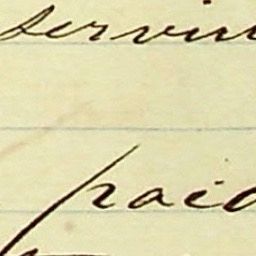 servin
paid